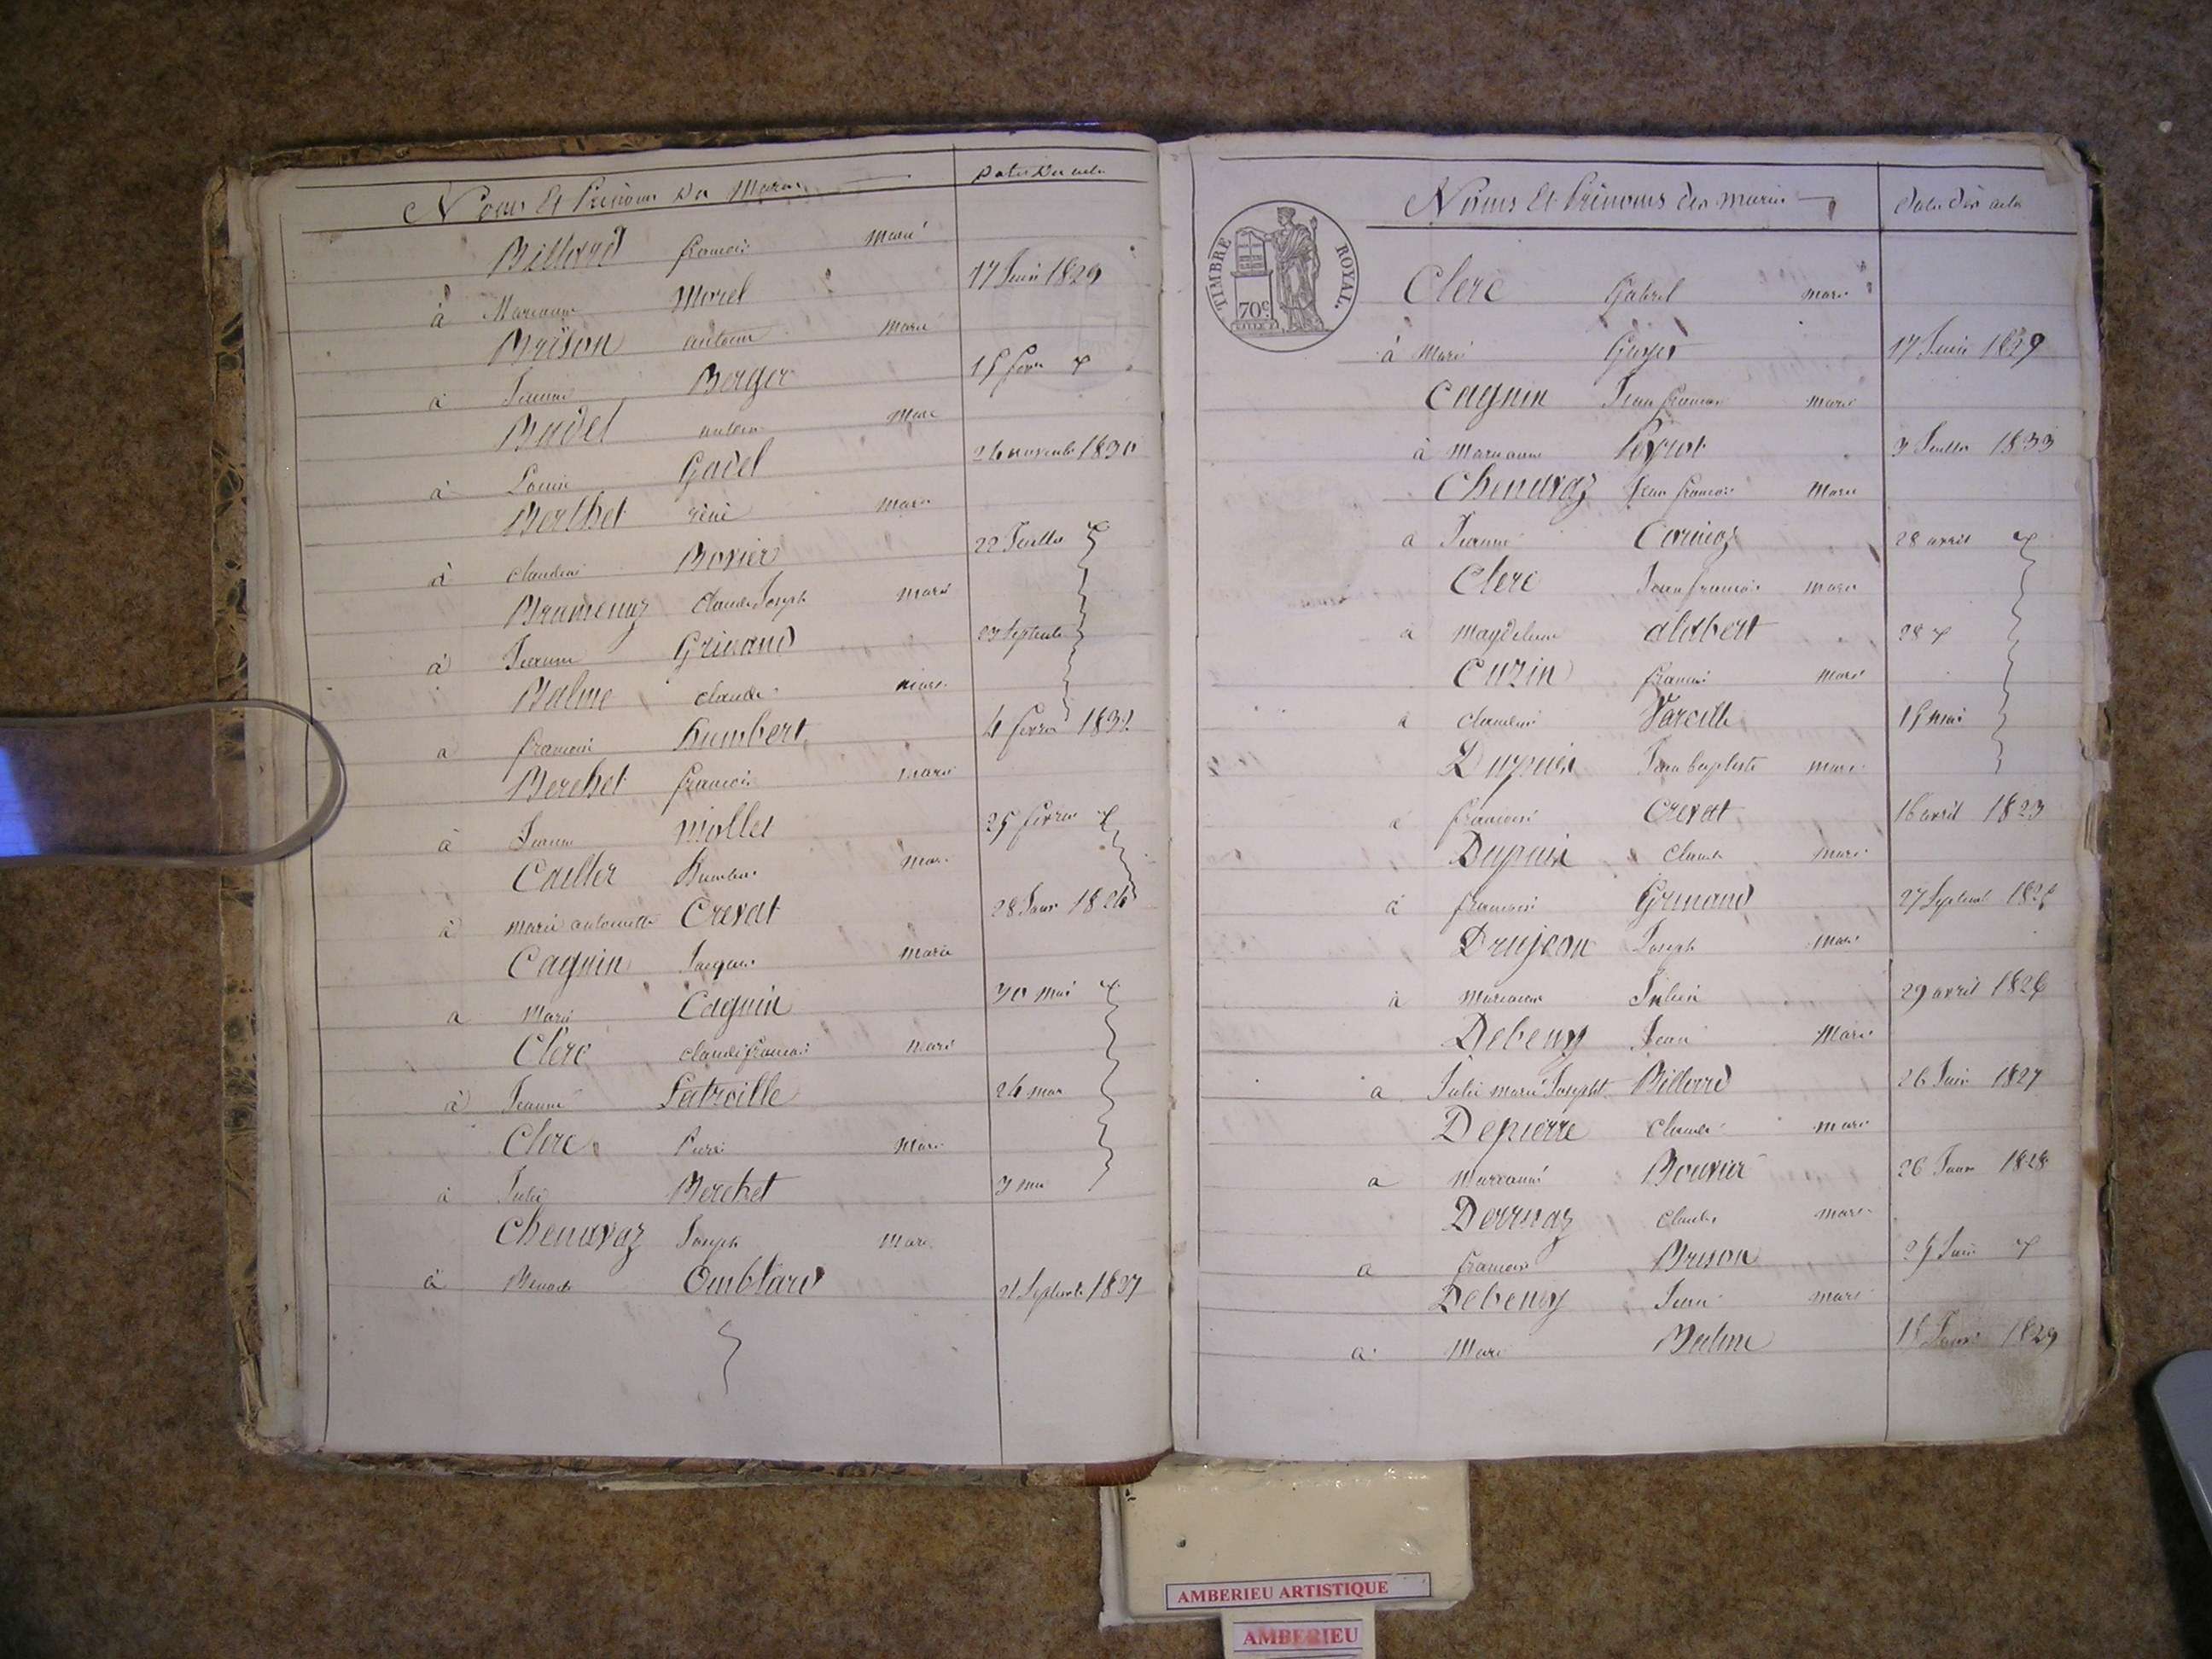 Noms Et Prénoms Des Maris
Dates Des actes
Billard francois marié
à Marianne Morel 17 Juin 1829
Brison antoine marié
à Jeanne Berger 15 fevr
Budel antoine marié
à Louise Gadel 26 novembre 1830
Berthet réné marié
à claudine Bovier 22 Juillet
Bramenaz Claude Joseph marié
à Jeanne Grinand 23 septembre
Balme claude marié
a francoise Humbert 4 fevrier 1832
Berchet francois marié
à Jeanne mollet 25 fevrier
Cailler Humbert marié
à marie antoinette Crevat 28 Janv 1826
Cagnin Jacques marié
a Marie Cagnin 30 mai
Clerc claude francois marié
à Jeanne Latreille 26 mar
Clerc Pierre marié
à Julie Berchet 3 mai
Chenavaz Joseph marié
à Benoite Omblard 21 Septembre 1837
TIMBRE ROYAL.
70c
Noms Et Prénoms des maris
Dates Des actes
Clerc Gabriel marié
à Marie 17 Juin 1829
Cagnin Jean francois marié
à Marianne Peyrot 3 Juillet 1833
Chenavaz Jean francois marié
a Jeanne Carnioz 28 avril
Clerc Jean francois marié
à Magdeleine alabert 28
Curin francois marié
à claudine Vareille 15 mai
Dupuis Jean baptiste marié
à francoise Crevat 16 avril 1823
Dupuis Claude marié
à francoise Grinand 27 Septembre
Drujeon Joseph marié
à Marianne Julien 29 avril 1826
Debeney Jean Marié
a Julie marie Josephte Billard 26 Juin 1827
Depierre Claude marié
a Marianne Bouvier 26 Janv 1828
Dervaz Claude marié
a francoise Brison 25 Juin
Debeney Jean marié
a Marie Balme 15 Janvier 1829
AMBERIEU ARTISTIQUE
AMBERIEU